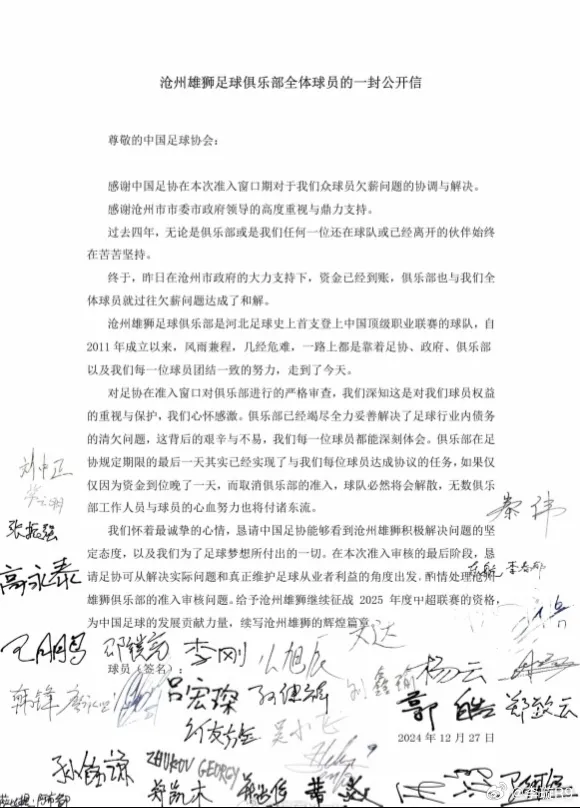 沧州雄狮足球俱乐部全体球员的一封公开信
尊敬的中国足球协会：
感谢中国足协在本次准入窗口期对于我们众球员欠薪问题的协调与解决。
感谢沧州市市委市政府领导的高度重视与鼎力支持。
过去四年，无论是俱乐部或是我们任何一位还在球队或已经离开的伙伴始终
在苦苦坚持。
终于，昨日在沧州市政府的大力支持下，资金已经到账，俱乐部也与我们全
体球员就过往欠薪问题达成了和解。
沧州雄狮足球俱乐部是河北足球史上首支登上中国顶级职业联赛的球队，自
2011 年成立以来，风雨兼程，几经危难，一路上都是靠着足协、政府、俱乐部
以及我们每一位球员团结一致的努力，走到了今天。
对足协在准入窗口对俱乐部进行的严格审查，我们深知这是对我们球员权益
的重视与保护，我们心怀感激。俱乐部已经竭尽全力妥善解决了足球行业内债务
的清欠问题，这背后的艰辛与不易，我们每一位球员都能深刻体会。俱乐部在足
协规定期限的最后一天其实已经实现了与我们每位球员达成协议的任务，如果仅
仅因为资金到位晚了一天，而取消俱乐部的准入，球队必然将会解散，无数俱乐
部工作人员与球员的心血努力也将付诸东流。
我们怀着最诚挚的心情，恳请中国足协能够看到沧州雄狮积极解决问题的坚
定态度，以及我们为了足球梦想所付出的一切。在本次准入审核的最后阶段，恳
请足协可从解决实际问题和真正维护足球从业者利益的角度出发，酌情处理沧州
雄狮俱乐部的准入审核问题。给予沧州雄狮继续征战 2025 年度中超联赛的资格，
为中国足球的发展贡献力量，续写沧州雄狮的辉煌篇章。
刘中正
张振强
高永泰
秦伟
李春郁
王鹏
李刚
文达
球员（签名）：
韩锋
吕宏琛
孙健翔
刘鑫瑜
杨云
郭皓
郑致云
吴小飞
2024 年 12 月 27 日
孙锦谦
ZHUKOV GEORGY
郑凯木